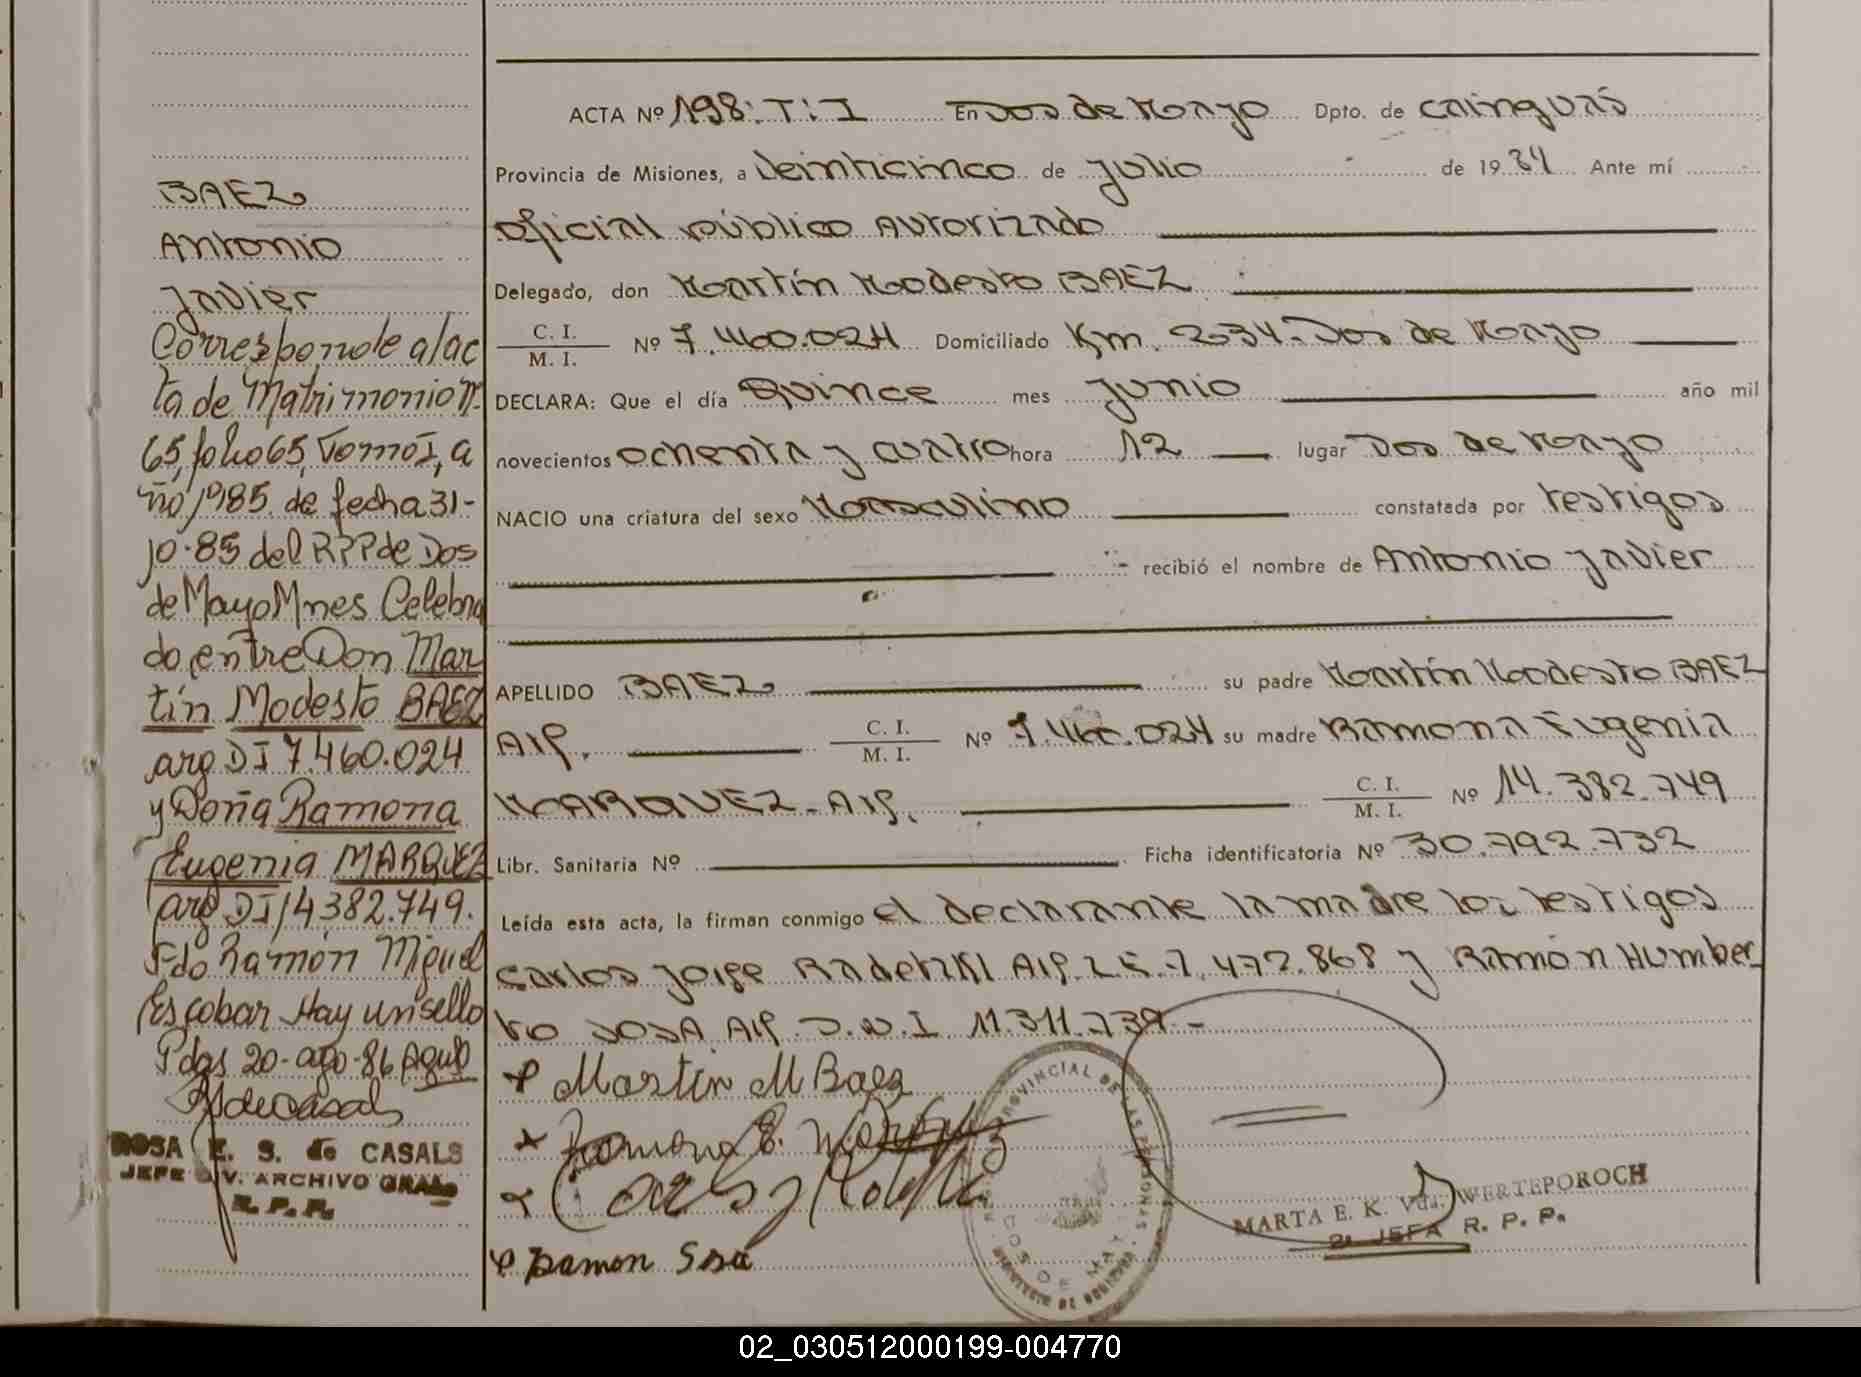 BAEZ
Antonio
Javier
Corresponde al ac
ta de Matrimonio Nº
65, folio 65, Tomo I, a
ño 1985 de fecha 31-
10-85 del RPP de Dos
de Mayo Mnes Celebra
do entre Don Mar
tín Modesto BAEZ
arg DI 7.460.024
y Doña Ramona
Eugenia MARQUEZ
arg DI 14382.749.
Fdo Ramón Miguel
Escobar Hay un sello
Pdas 20-ago-86
ROSA E. S. de CASALS
JEFE DIV. ARCHIVO GRAL.
R. P. P.
ACTA Nº 198: T: I En Dos de Mayo Dpto. de Cainguás
Provincia de Misiones, a Veinticinco de Julio de 1984 Ante mí
oficial público autorizado
Delegado, don Martín Modesto BAEZ
C. I. / M. I. Nº 7.460.024 Domiciliado Km. 234-Dos de Mayo
DECLARA: Que el día Quince mes Junio año mil
novecientos ochenta y cuatro hora 12 lugar Dos de Mayo
NACIO una criatura del sexo Masculino constatada por testigos
recibió el nombre de Antonio Javier
APELLIDO BAEZ su padre Martín Modesto BAEZ
Arg. C. I. / M. I. Nº 7.460.024 su madre Ramona Eugenia
MARQUEZ-Arg. C. I. / M. I. Nº 14.382.749
Libr. Sanitaria Nº Ficha identificatoria Nº 30.792.732
Leída esta acta, la firman conmigo el declarante la madre los testigos
Carlos Jorge Radetzki Arg. L.E. 7.472.868 y Ramón Humber
to SOSA Arg. D.N.I 11.311.739.-
Martin M Baez
Ramona E.
Ramon Sosa
PROVINCIAL DE LAS PERSONAS
DOS DE MAYO
MARTA E. K. Vda. WERTEPOROCH
2ª JEFA R. P. P.
02_030512000199-004770